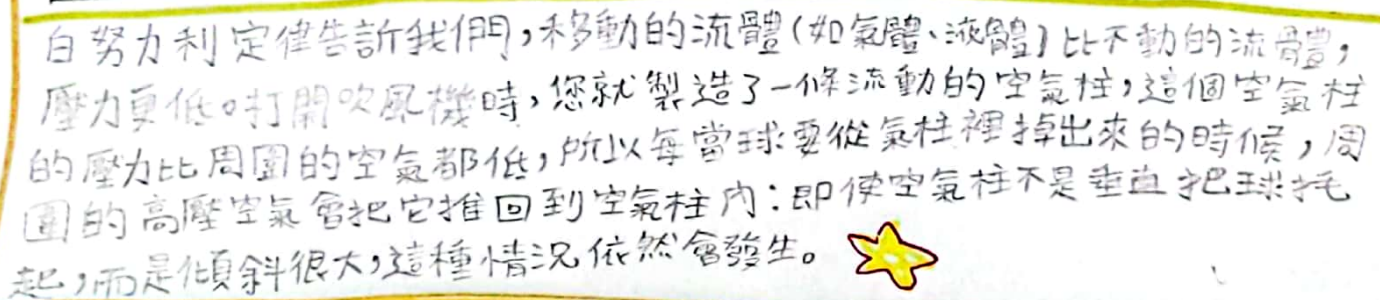 白努力利定律告訴我們，移動的流體(如氣體、液體)比不動的流體，
壓力更低。打開吹風機時，您就製造了一條流動的空氣柱，這個空氣柱
的壓力比周圍的空氣都低，所以每當球要從氣柱裡掉出來的時候，周
圍的高壓空氣會把它推回到空氣柱內：即使空氣柱不是垂直把球托
起，而是傾斜很大，這種情況依然會發生。